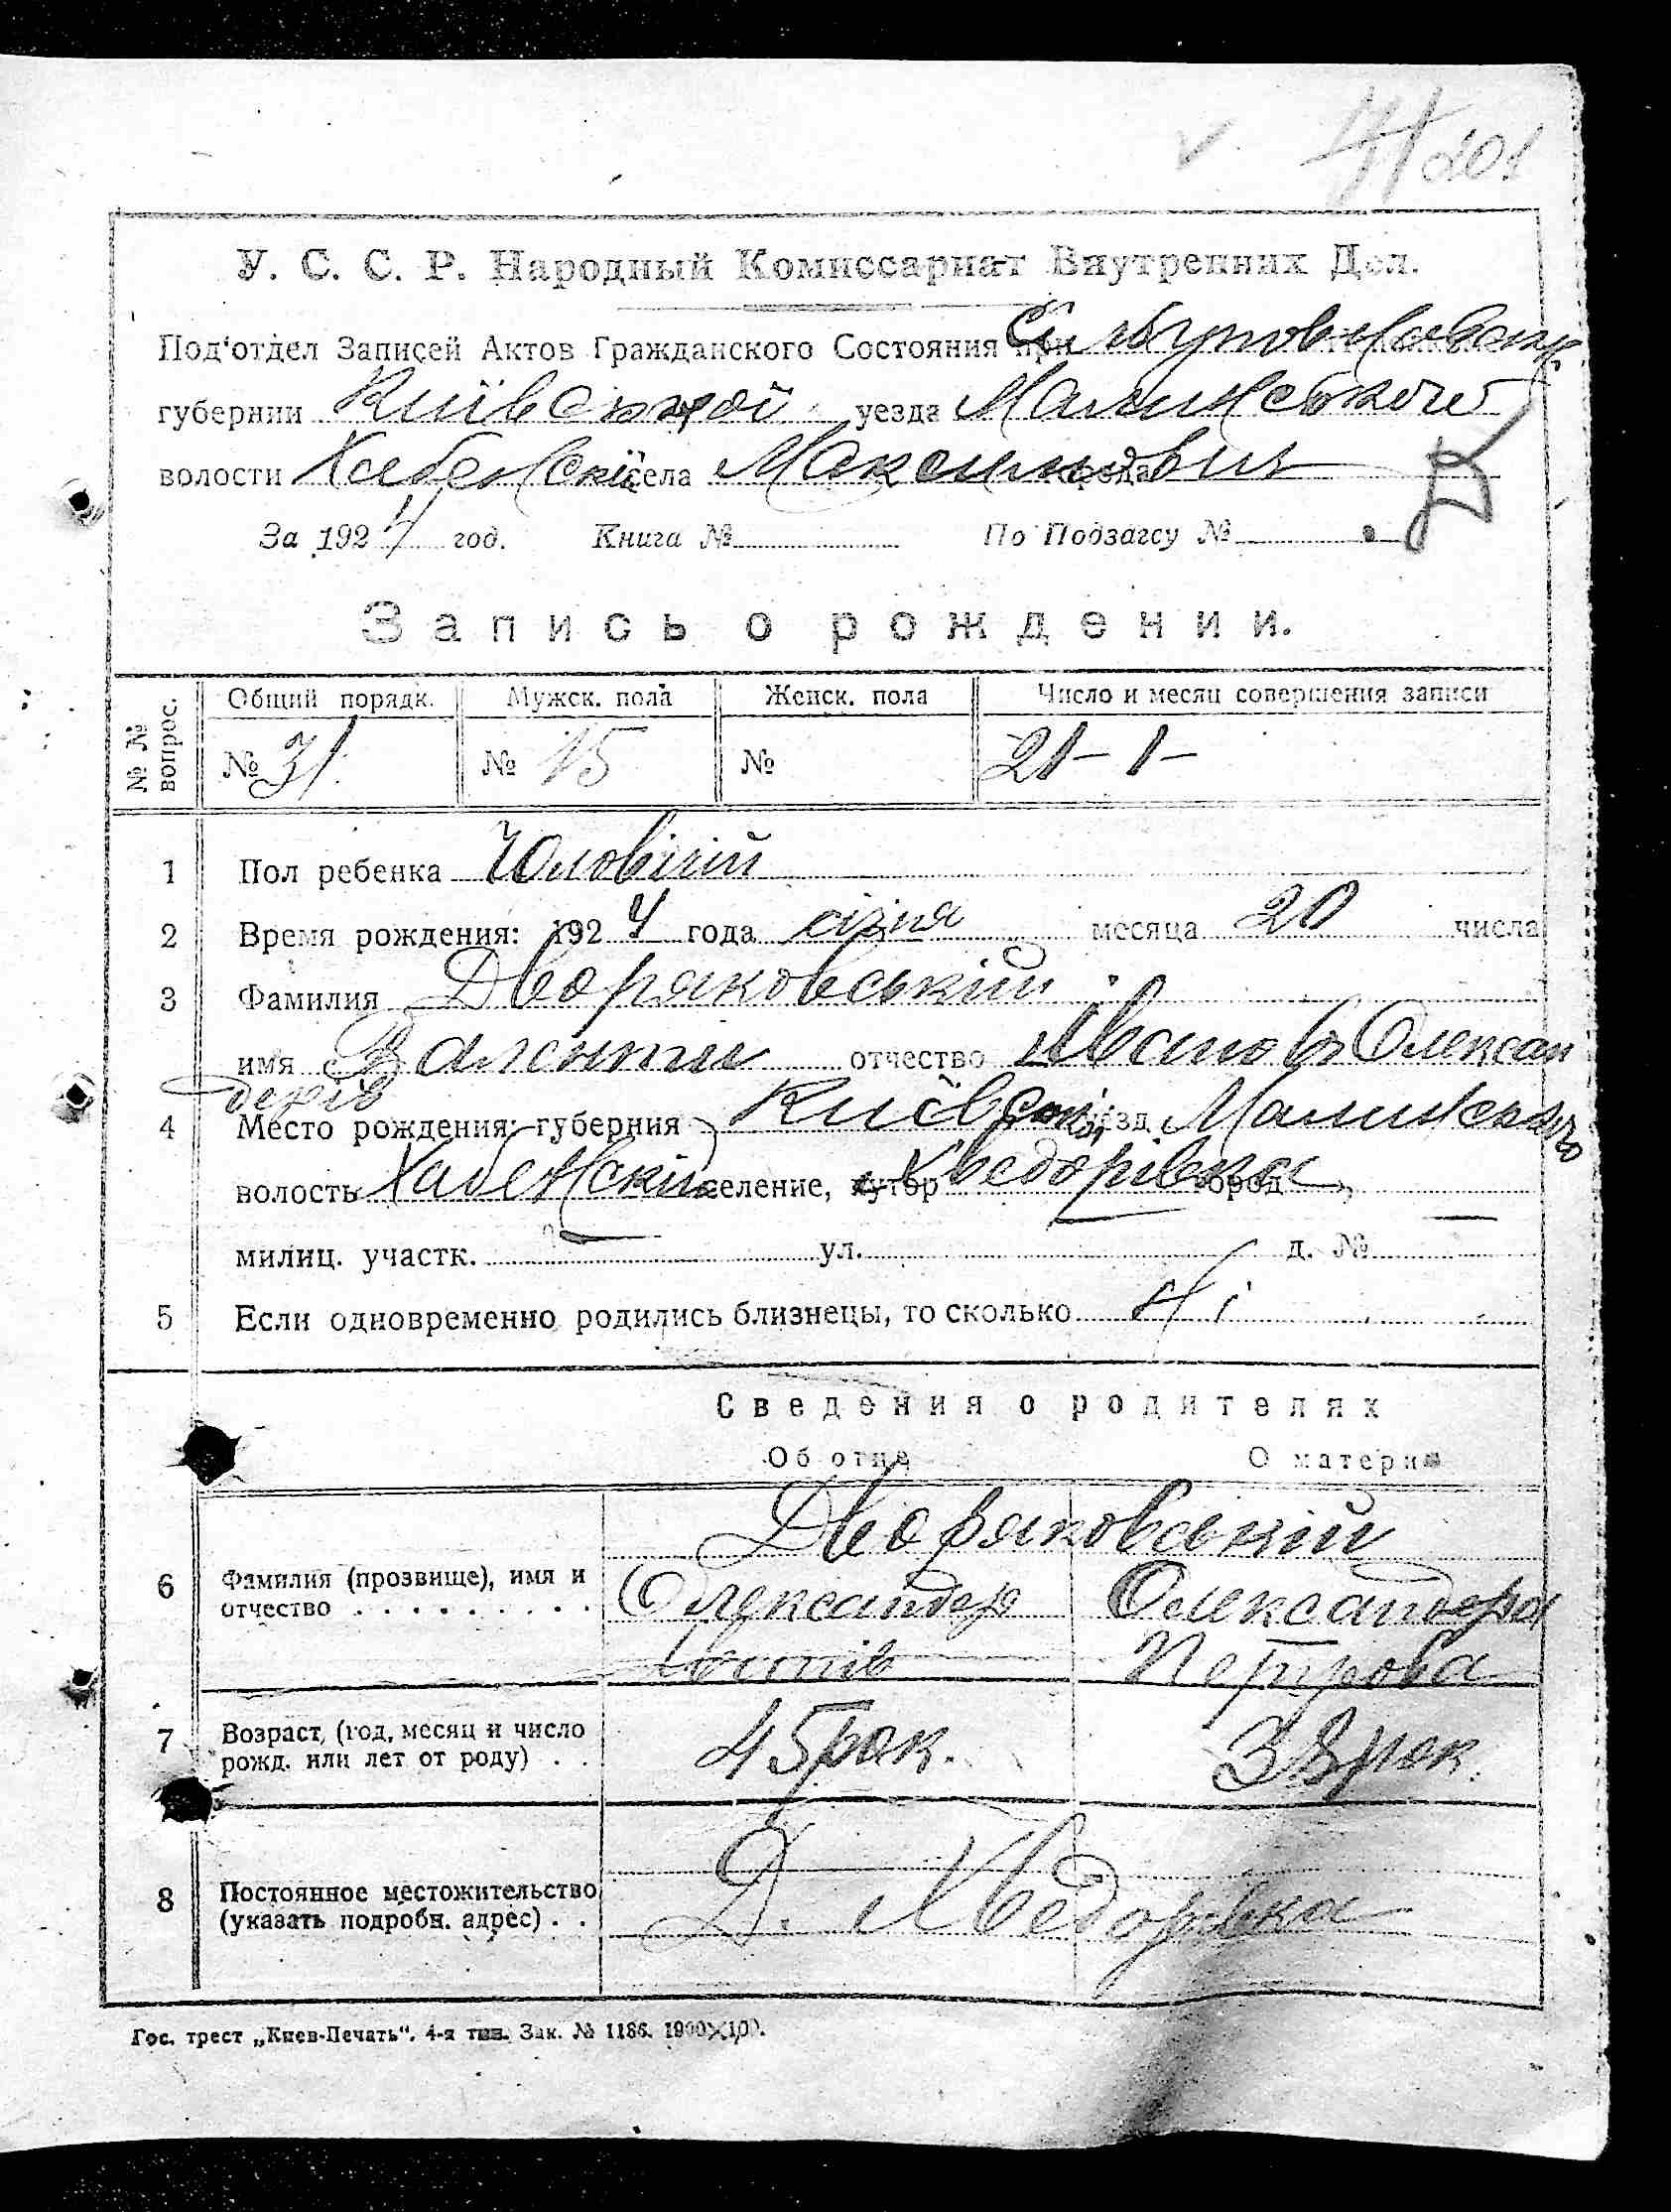 201
У. С. С. Р. Народный Комиссариат Внутренних Дел.
Под'отдел Записей Актов Гражданского Состояния при
губернии Київської уезда Малинського
волости Хабенскої села Максимович города
За 1924 год. Книга № По Подзагсу №
Запись о рождении.
№ № вопрос. Общий порядк. Мужск. пола Женск. пола Число и месяц совершения записи
№ 31 № 15 № 21 – 1 –
1 Пол ребенка Чоловічій
2 Время рождения: 1924 года січня месяца 20 числа
3 Фамилия Дворяковській
имя Валентин отчество Олексан
дерів
4 Место рождения: губерния Київскої уезд Малинського
волость Хабенскій селение, хутор Хведорівка город
милиц. участк. ул. д. №
5 Если одновременно родились близнецы, то сколько
Сведения о родителях
Об отце О матери
Дворяковській
6 Фамилия (прозвище), имя и отчество Олександер Олександера
Петрова
7 Возраст, (год, месяц и число рожд. или лет от роду) 45 рок. 38 рок.
8 Постоянное местожительство (указать подробн. адрес) Д. Хведорівка
Гос. трест „Киев-Печать". 4-я тип. Зак. № 1186. 1900×100.